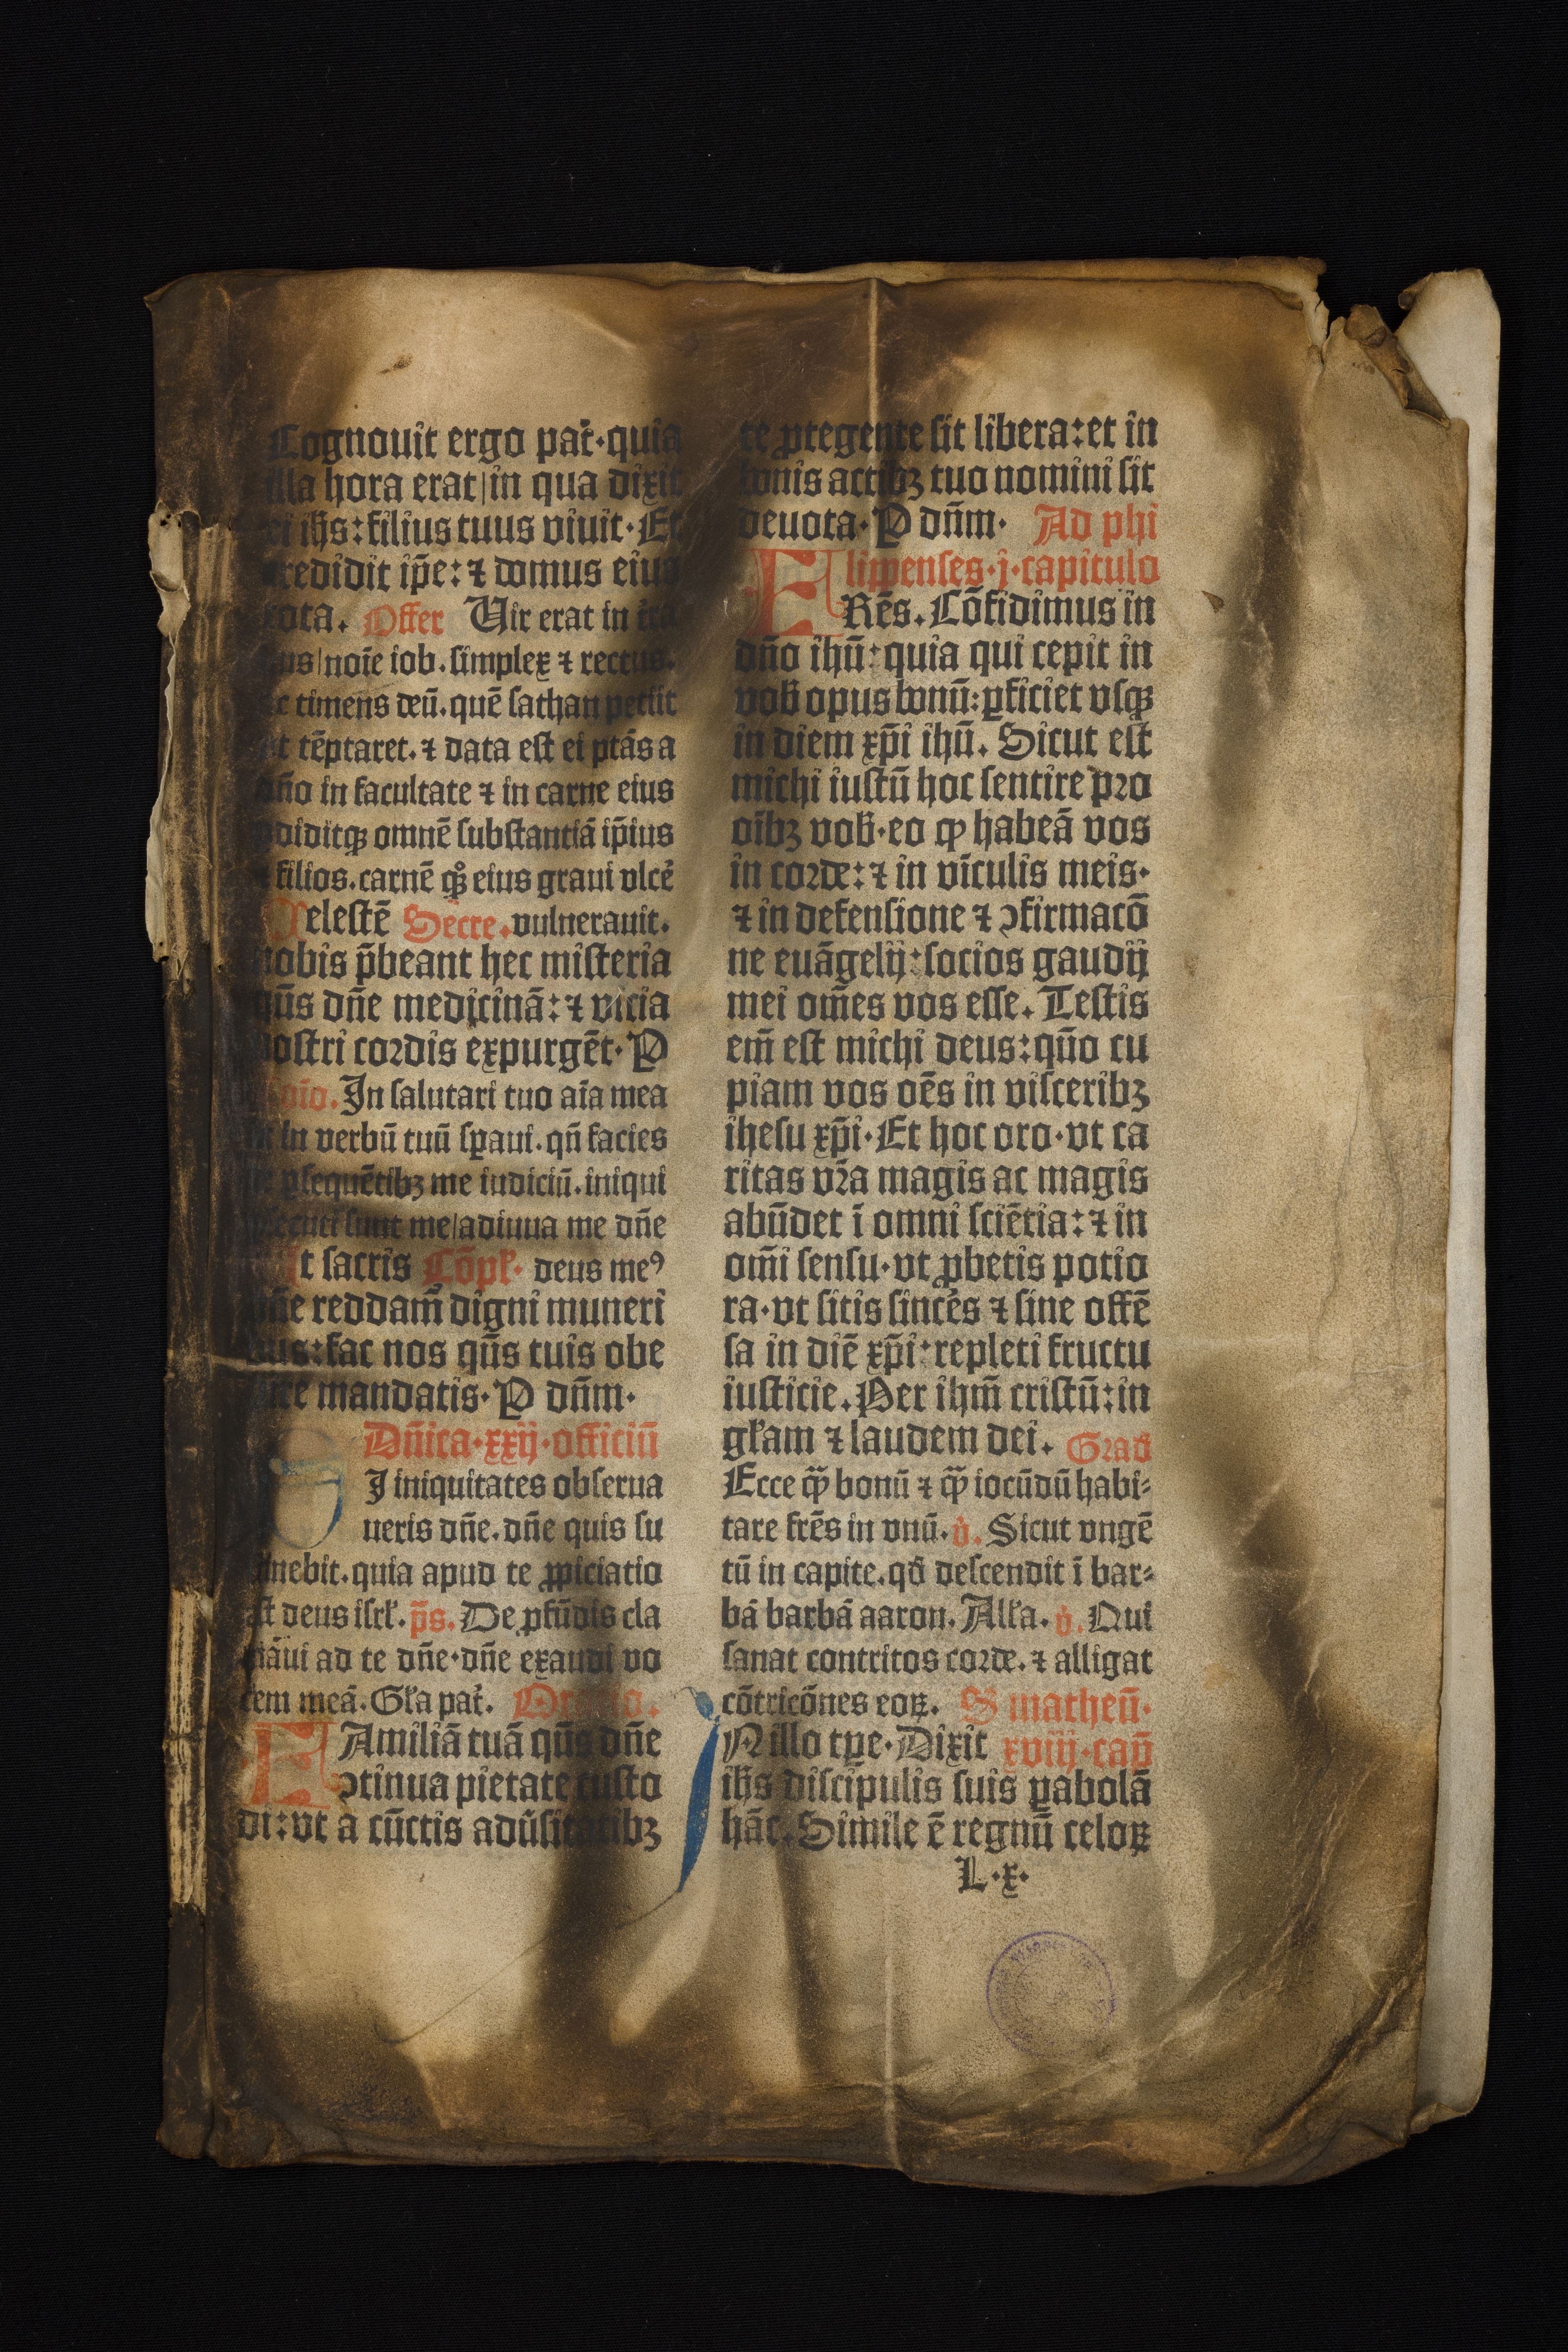 Cognouit ergo pat̄·quia
illa hora erat|in qua dixit
ei ih̄s:filius tuus viuit·Et
credidit ip̄e:⁊ domus eius
tota. Offer Uir erat in t̄ra
hus|noīe iob.simplex ⁊ rectus.
ac timens deū.quē sathan petiit
vt tēptaret.⁊ data est ei ptās a
dn̄o in facultate ⁊ in carne eius
ꝑdiditqꝫ omnē substantiā ip̄ius
⁊ filios.carnē qꝫ eius graui vlcē
Celestē Secre.vulnerauit.
nobis p̄beant hec misteria
qūs dn̄e medicinā:⁊ vicia
nostri cordis expurgēt·P
ōio.In salutari tuo aīa mea
⁊ in verbū tuū sꝑaui.qn̄ facies
de ꝑsequētibꝫ me iudiciū.iniqui
ꝑsecuti sunt me|adiuua me dn̄e
Ut sacris Cōpł· deus meꝰ
dn̄e reddam̄ digni muneri
bus:fac nos qūs tuis obe
dire mandatis·P dn̄m·
Dn̄ica·xxij·officiū
SI iniquitates obserua
ueris dn̄e.dn̄e quis su
stinebit.quia apud te ꝓpiciatio
est deus isrł.p̄s.De ꝓfūdis cla
māui ad te dn̄e·dn̄e exaudi vo
cem meā.Gła pat̄. Oratio.
FAmiliā tuā qūs dn̄e
ↄtinua pietate custo
di:vt a cūctis adūsitatibꝫ
te ꝓtegente sit libera:et in
bonis actibꝫ tuo nomini sit
deuota·P dn̄m· Ad phi
lippenses·j·capitulo
FRēs.Cōfidimus in
dn̄o ihū:quia qui cepit in
vob̄ opus bonū:ꝑficiet vsqꝫ
in diem xp̄i ihū.Sicut est
michi iustū hoc sentire pro
oībꝫ vob̄·eo ꝙ habeā vos
in corde:⁊ in vīculis meis·
⁊ in defensione ⁊ ↄfirmacō
ne euāgelij:socios gaudij
mei om̄es vos esse.Testis
em̄ est michi deus:qn̄o cu
piam vos oēs in visceribꝫ
ihesu xp̄i·Et hoc oro·vt ca
ritas vr̄a magis ac magis
abūdet ī omni sciētia:⁊ in
om̄i sensu·vt ꝓbetis potio
ra·vt sitis sincēs ⁊ sine offē
sa in diē xp̄i:repleti fructu
iusticie.Per ihm̄ cristū:in
głam ⁊ laudem dei. Grad
Ecce ꝙ̄ bonū ⁊ ꝙ̄ iocūdū habi⸗
tare frēs in vnū.v̇.Sicut vngē
tū in capite.qd̄ descendit ī bar⸗
bā barbā aaron.Alła.v̇.Qui
sanat contritos corde.⁊ alligat
cōtricōnes eoꝝ. S matheū·
IN illo tꝑe·Dixit xviij·cap̄
ih̄s discipulis suis ꝑabolā
hāc.Simile ē regnū celoꝝ
L·x·